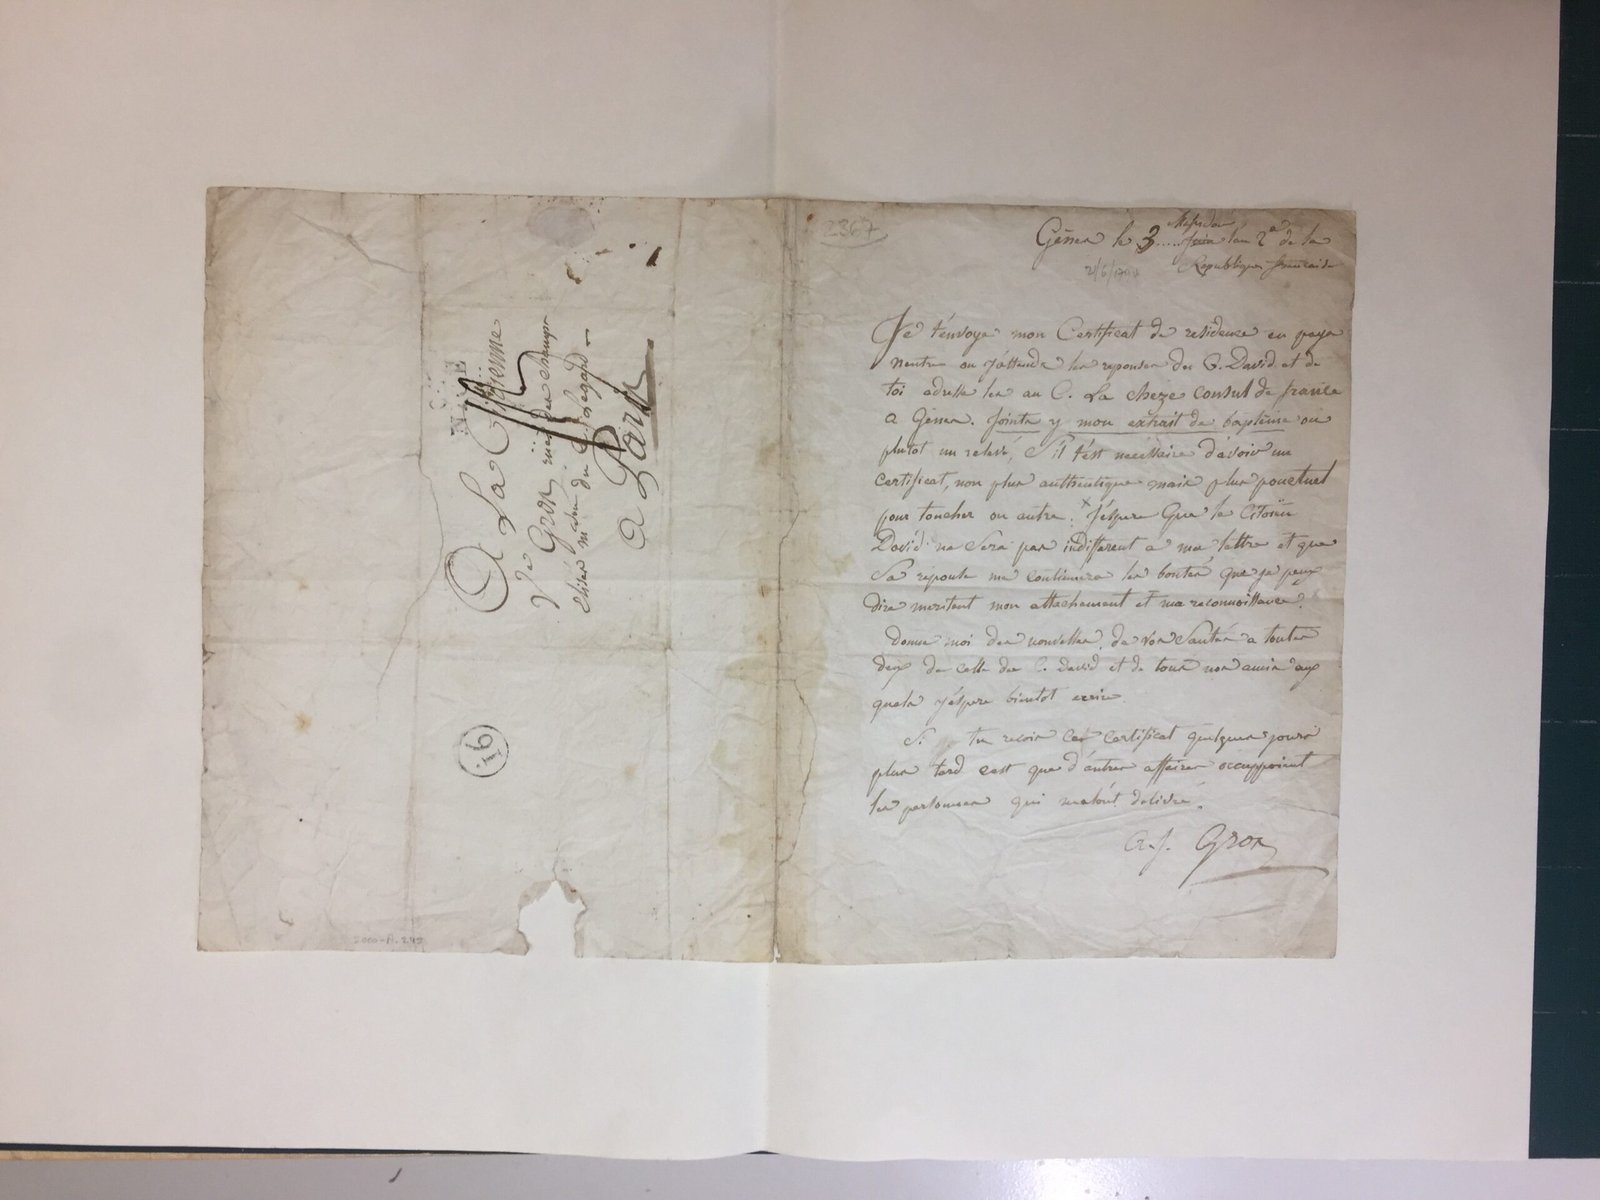 2367
Gênes le 3 Messidor
Juin l'an 2e de la
Republique francaise
2/6/1794
Je t'envoye mon Certificat de residence en pays
neutre ou j'attends les reponses du C. David et de
toi adresse les au C. La cheze consul de france
a Gênes. Joints y mon extrait de baptême ou
plutot un relevé, S'il t'est necessaire d'avoir un
certificat, non plus authentique mais plus ponctuel
pour toucher ou autre. J'espere Que le Citoien
David ne Sera pas indifferent a ma lettre et que
Sa reponse me continuera les bontés que je peux
dire meritent mon attachement et ma reconnoissance.
Donne moi des nouvelles de vos Santés a toutes
deux de celle du C. David et de tous nos amis aux
quels j'espere bientot ecrire
Si tu recois ce certificat quelques jours
plus tard c'est que d'autres affaires occuppoient
les personnes qui me l'ont delivré.
A. J. Gros
NICE
A La Citoyenne
Ve Gros, rüe des champs
Elisées maison du C. Legrand
a Paris
16
2000-A.249